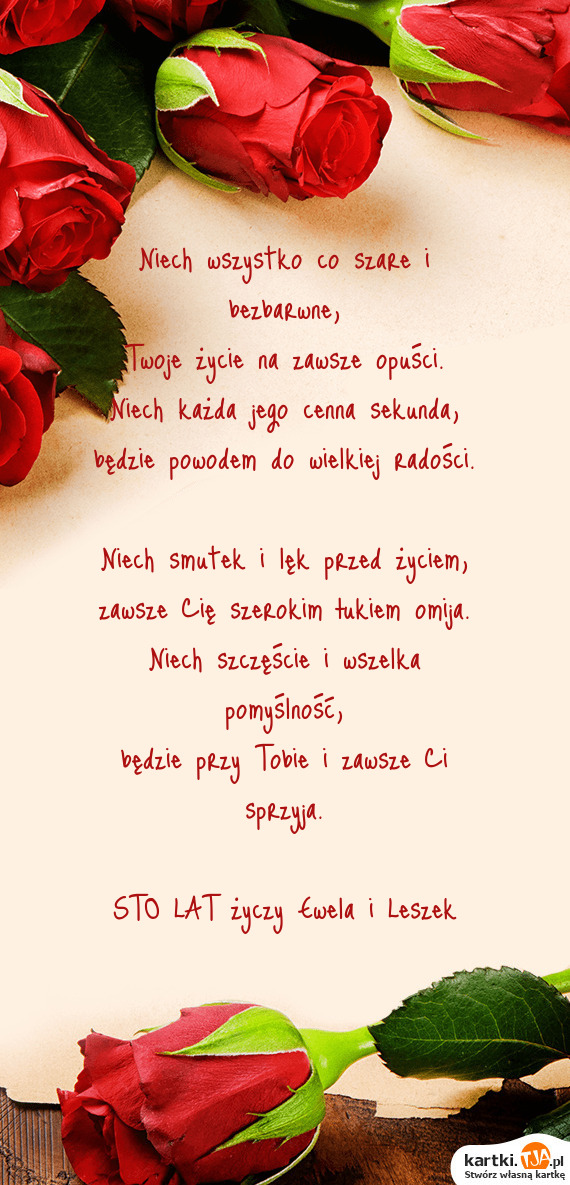 Niech wszystko co szare i
bezbarwne,
Twoje życie na zawsze opuści.
Niech każda jego cenna sekunda,
będzie powodem do wielkiej radości.
Niech smutek i lęk przed życiem,
zawsze Cię szerokim łukiem omija.
Niech szczęście i wszelka
pomyślność,
będzie przy Tobie i zawsze Ci
sprzyja.
STO LAT życzy Ewela i Leszek
kartki.TJA.pl
Stwórz własną kartkę